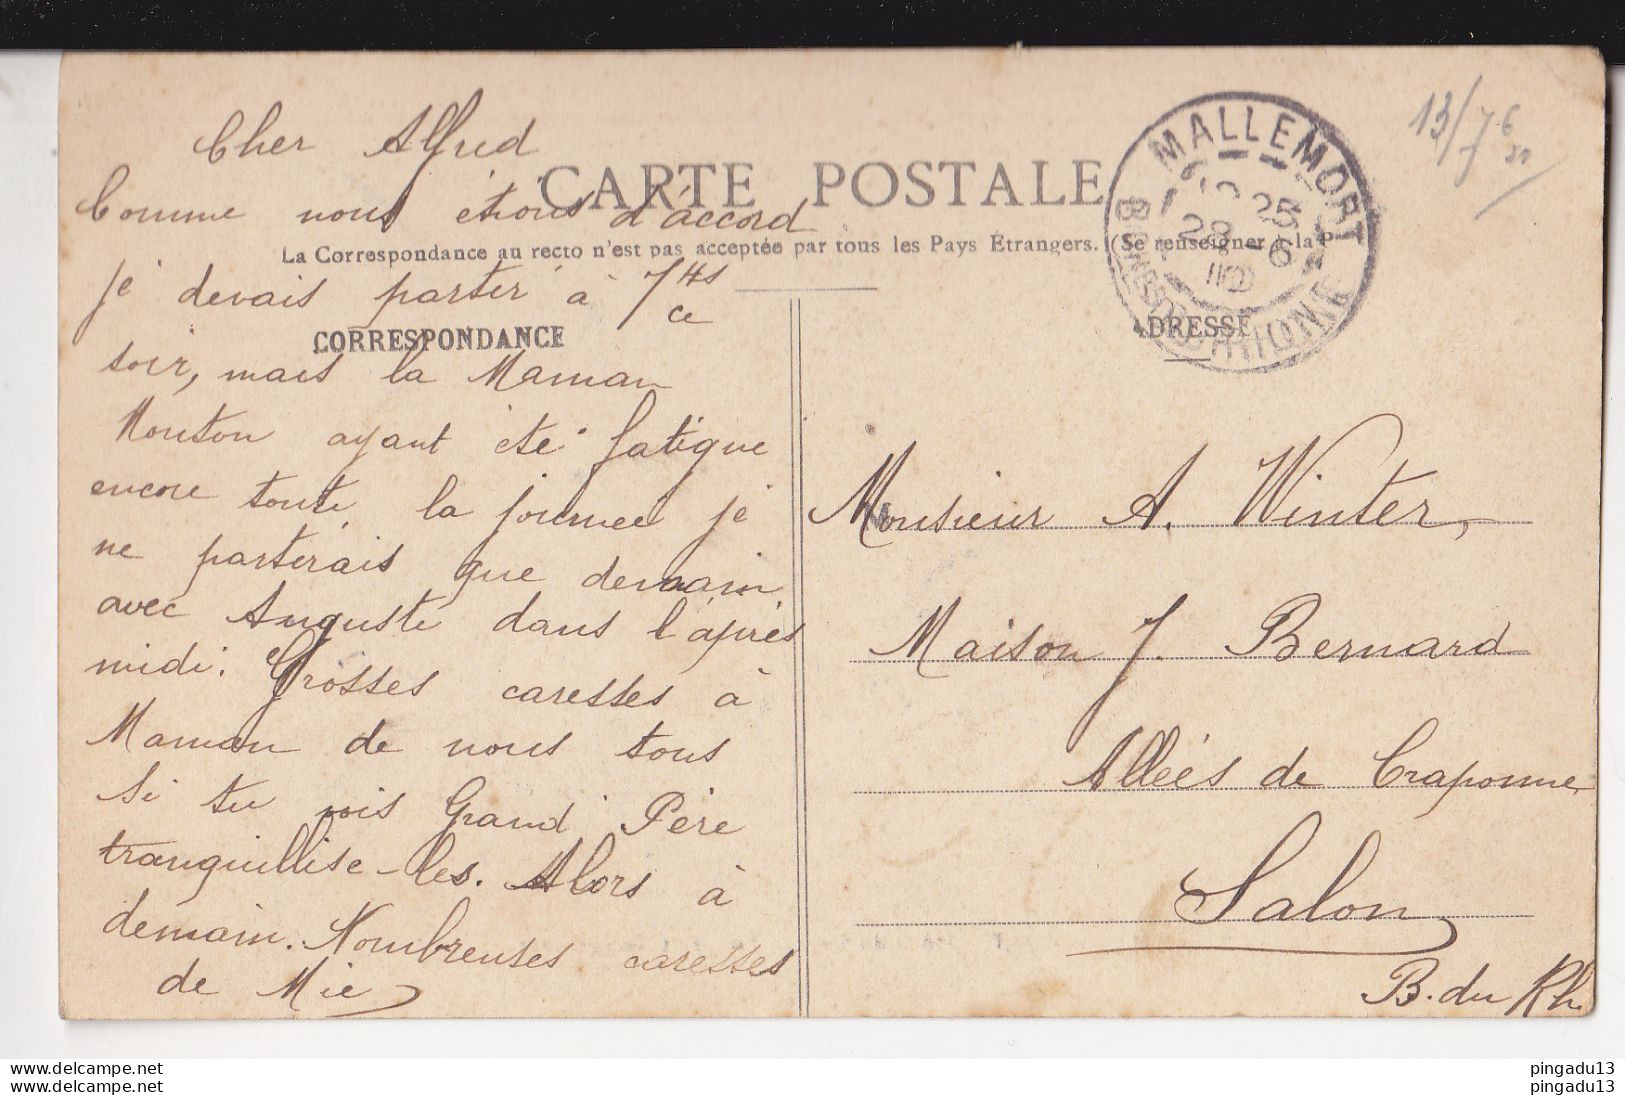 Cher Alfred
CARTE POSTALE
Comme nous étions d'accord
La Correspondance au recto n'est pas acceptée par tous les Pays Étrangers. (Se renseigner à la P
je devais partir à 7 Hs
ce
CORRESPONDANCE
soir, mais la Maman
Mouton ayant été fatigué
encore toute la journée je
ne parterais que demain
avec Auguste dans l'après
midi. Grosses caresses à
Maman de nous tous
Si tu vois Grand Père
tranquillise-les. Alors à
demain. Nombreuses caresses
de Mie
MALLEMORT
25
28 - 6
BOUCHES DU RHONE
13/76
ADRESSE
Monsieur A. Winter,
Maison J. Bernard
Allées de Craponne
Salon
B. du Rh.
delcampe.net
delcampe.net
pingadu13
pingadu13